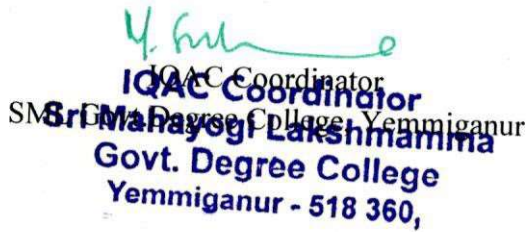 IQAC Coordinator
SML Govt Degree College, Yemmiganur
IQAC Coordinator
Sri Mahayogi Lakshmamma
Govt. Degree College
Yemmiganur - 518 360,